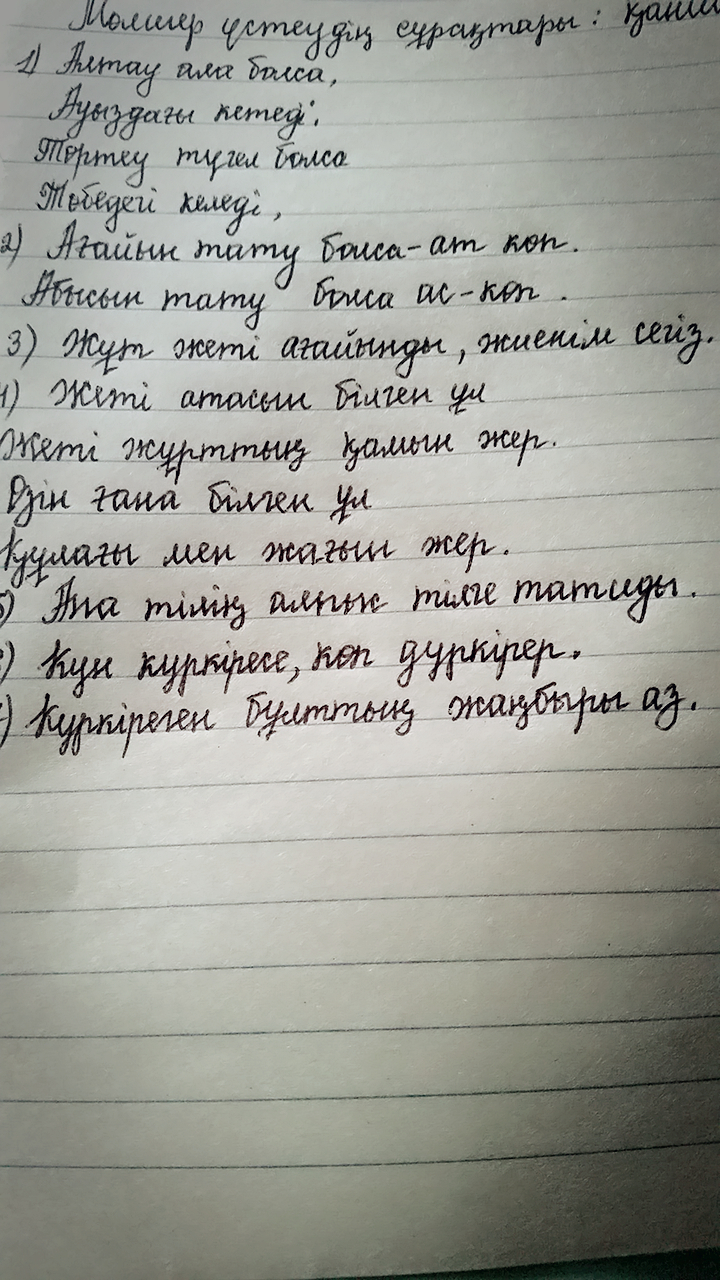 Мөлшер үстеудің сұрақтары:
1) Алтау ала болса,
Ауыздағы кетеді.
Төртеу түгел болса
Төбедегі келеді,
2) Ағайын тату болса-ат көп.
Абысын тату болса ас-көп.
3) Жұт жеті ағайынды, жиенім сегіз.
4) Жеті атасын білген ұл
Жеті жұрттың қамын жер.
Өзін ғана білген ұл
Құлағы мен жағын жер.
5) Ана тілің алпыс тілге татиды.
) Күн күркіресе, көп дүркірер.
) Күркіреген бұлттың жаңбыры аз.